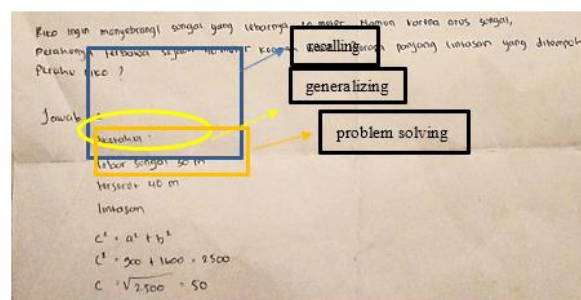 Riko ingin menyebrangi sungai yang lebarnya 30 meter. Namun karena arus sungai,
Perahunya terbawa sejauh 40 meter panjang lintasan yang ditempuh
Perahu riko ?
recalling
generalizing
problem solving
Jawab :
lebar sungai 30 m
terseret 40 m
lintasan
c² = a² + b²
c² = 900 + 1600 = 2500
c = √2.500 = 50